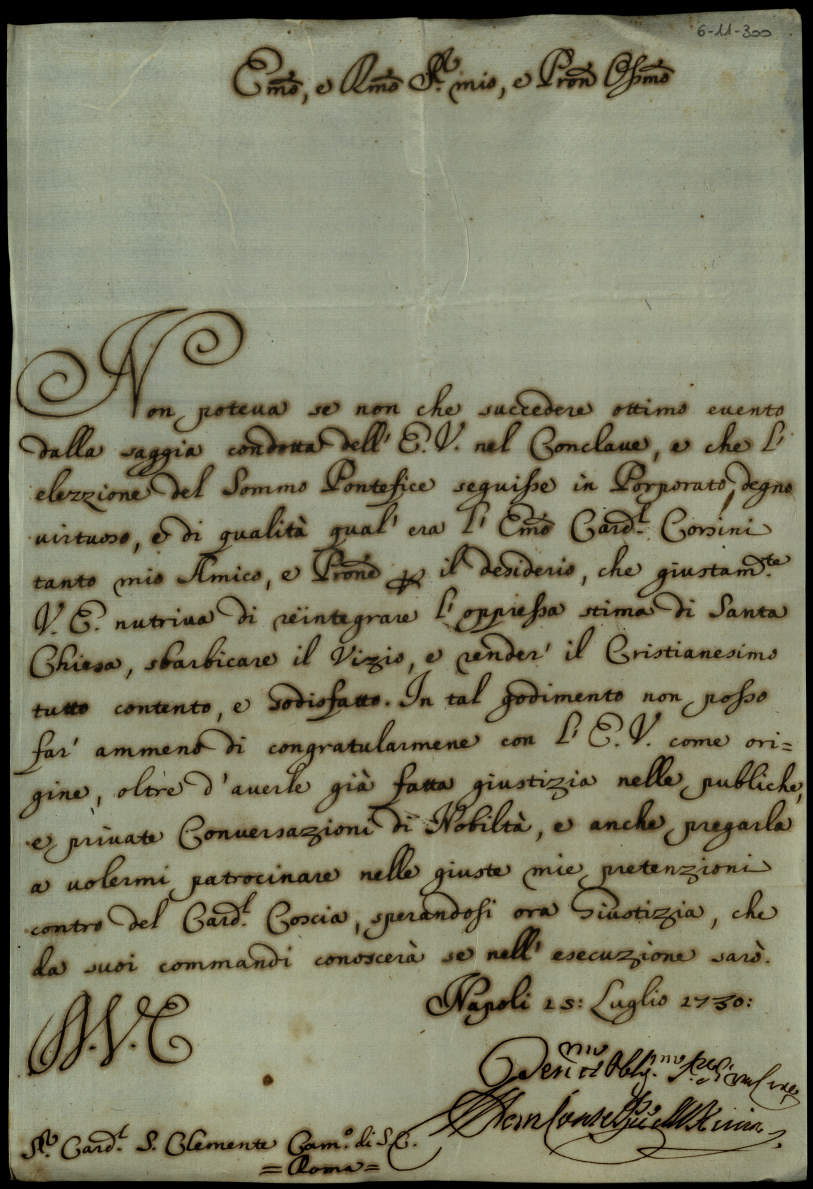 6-11-300
Emo, e Rmo Sr. mio, e Prone Ossmo
Non poteva se non che succedere ottimo evento
dalla saggia condotta dell' E. V. nel Conclave, e che l'
elezzione del Sommo Pontefice seguisse in Porporato, degno
virtuoso, e di qualità qual' era l' Emo Cardl. Corsini
tanto mio Amico, e Prone p il desiderio, che giustamte.
V. E. nutriva di reintegrare l' oppressa stima di Santa
Chiesa, sbarbicare il Vizio, e render' il Cristianesimo
tutto contento, e sodisfatto. In tal godimento non posso
far' ammeno di congratularmene con l' E. V. come ori=
gine, oltre d'averle già fatta giustizia nelle publiche,
e private Conversazioni di Nobiltà, e anche pregarla
a volermi patrocinare nelle giuste mie pretenzioni
contro del Cardl. Coscia, sperandosi ora Giustizia, che
da suoi commandi conoscerà se nell' esecuzione sarò.
Napoli 25: Luglio 1730:
A. V. E.
Sr. Cardl. S. Clemente Camo. di S. C.
= Roma =